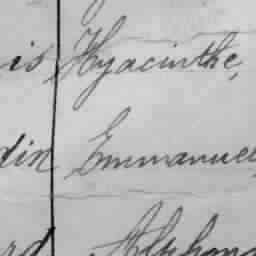 is Hyacinthe,
din Emmanuel
rd Alphons